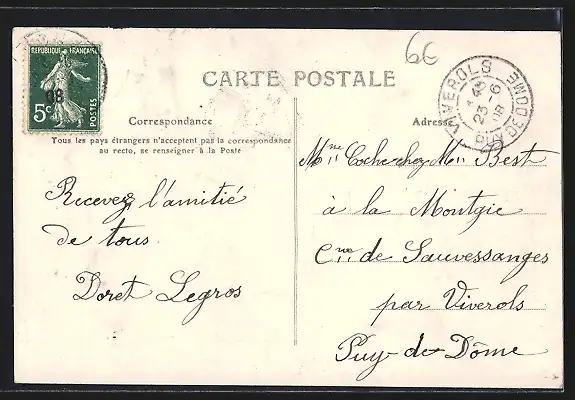 66
REPUBLIQUE FRANÇAISE
5c
POSTES
08
CARTE POSTALE
VIVEROLS
23 6
08
PUY DE DOME
Correspondance
Tous les pays étrangers n'acceptent pas la correspondance
au recto, se renseigner à la Poste
Adresse
Recevez l'amitié
de tous
Doret Legros
Mme Coche chez Mr Best
à la Montgie
Cne de Sauvessanges
par Viverols
Puy-de-Dôme